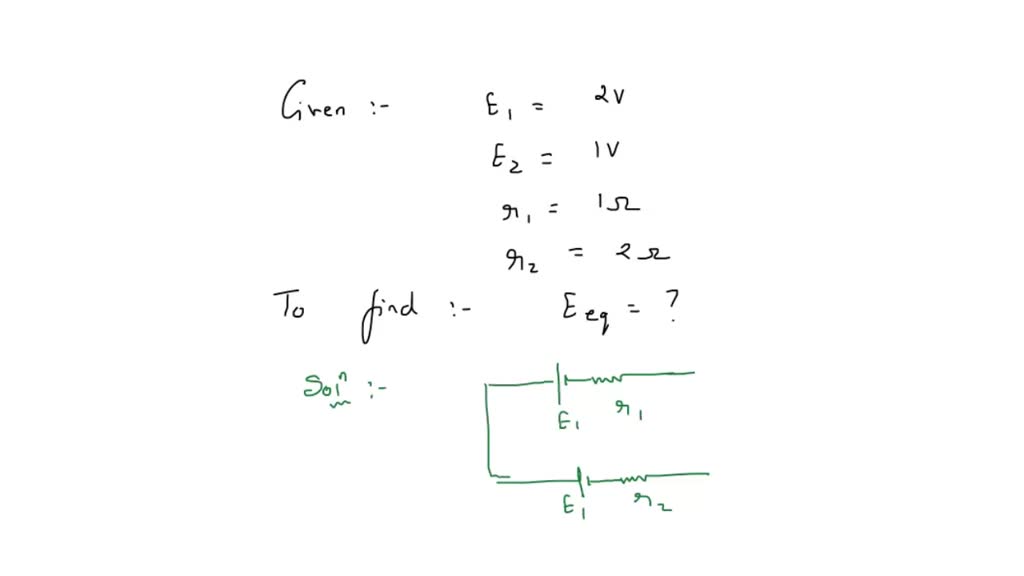 Given :- E₁ = 2V
E₂ = 1V
r₁ = 1Ω
r₂ = 2Ω
To find :- E_eq = ?
Solⁿ :-
E₁ r₁
E₁ r₂